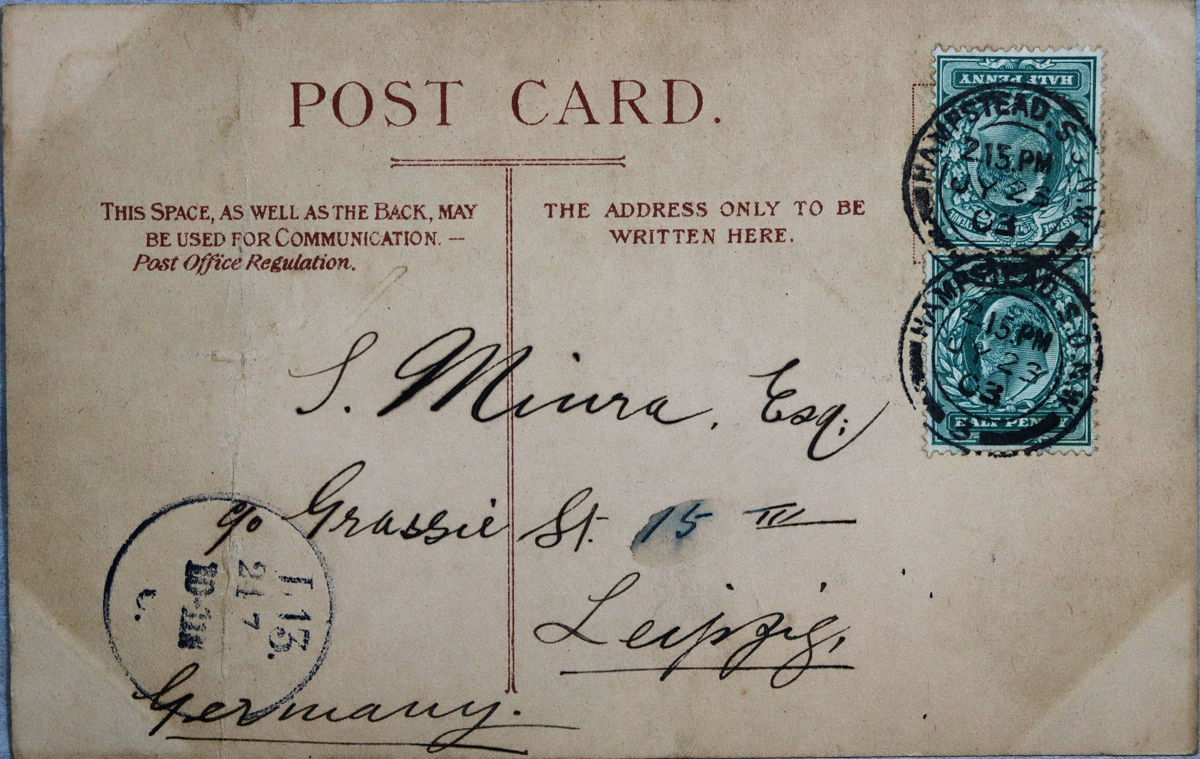 POST CARD.
THIS SPACE, AS WELL AS THE BACK, MAY
BE USED FOR COMMUNICATION. —
Post Office Regulation.
THE ADDRESS ONLY TO BE
WRITTEN HERE.
HALF PENNY
HAMPSTEAD. S.O. N.W.
2.15.PM
JY 2
03
HAMPSTEAD. S.O. N.W.
2.15.PM
JY 2
03
HALF PENNY
S. Miura, Esq.
c/o Grassie St. 15 III
Leipzig,
Germany.
L.13.
21 7
10-11N
c.